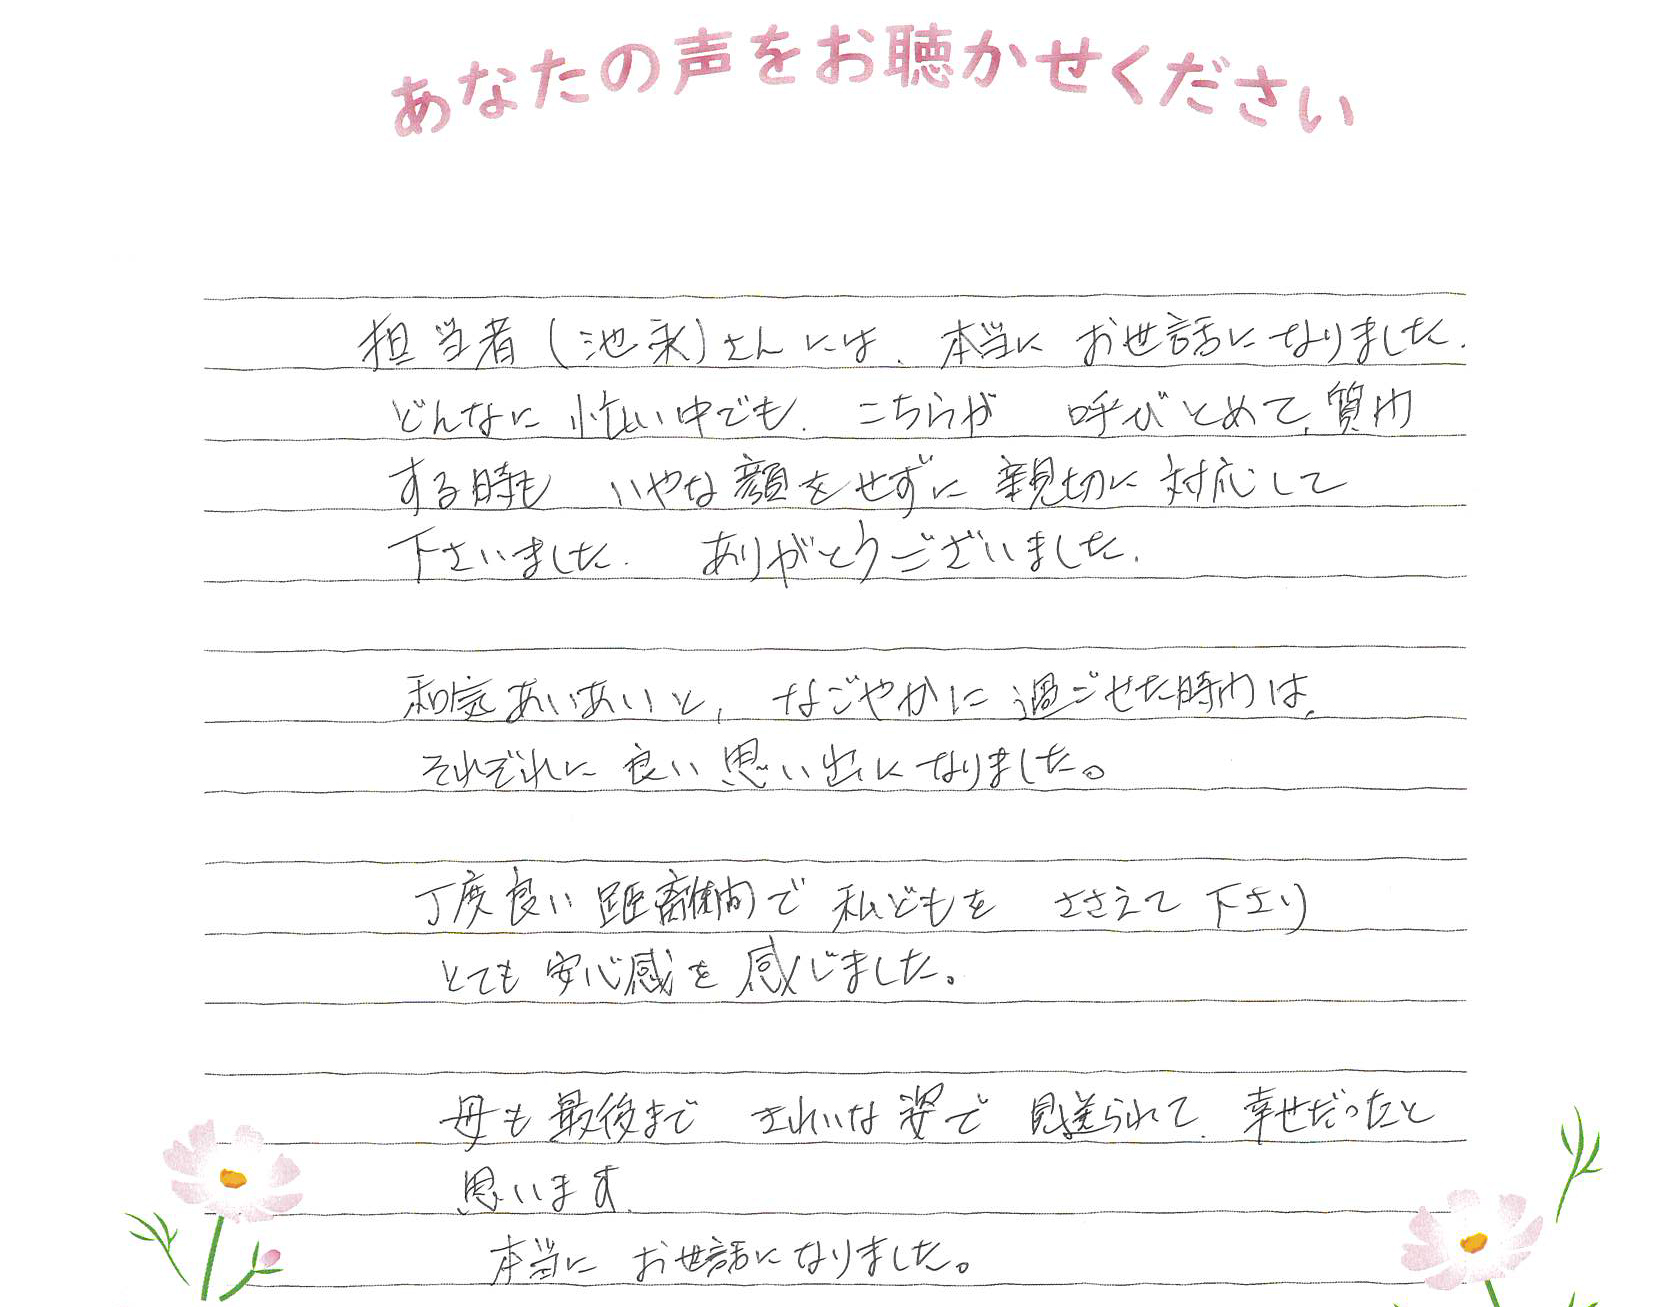 あなたの声をお聴かせください
担当者(池永)さんには、本当に お世話になりました.
どんなに 忙しい中でも、こちらが 呼びとめて、質問
する時も いやな顔をせずに 親切に 対応して
下さいました. ありがとうございました.
和気あいあいと、なごやかに 過ごせた時間は、
それぞれに 良い 思い出に なりました。
丁度良い 距離間で 私どもを ささえて 下さり
とても 安心感を 感じました。
母も 最後まで きれいな 姿で 見送られて、幸せだったと
思います.
本当に お世話になりました。